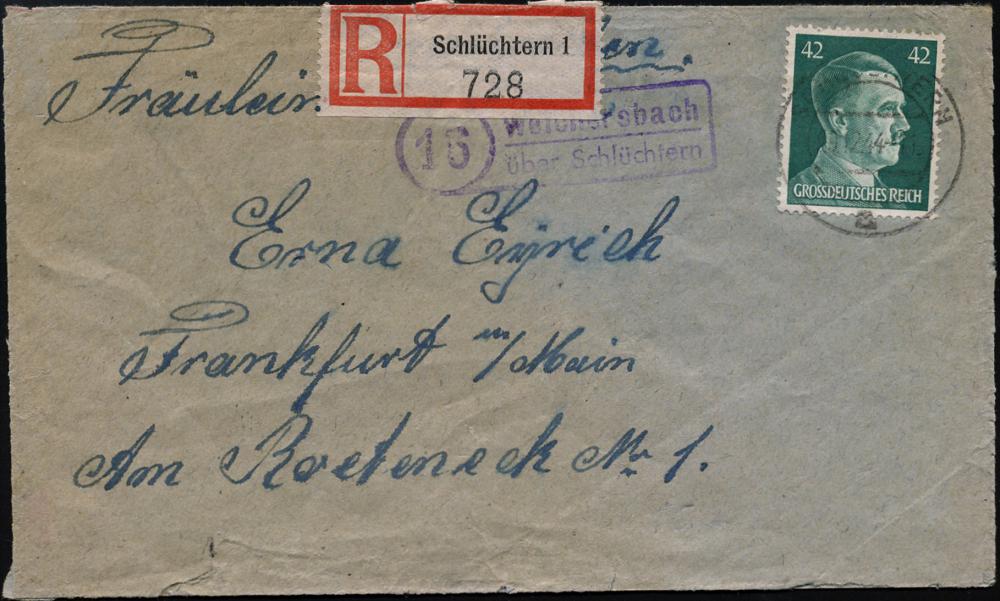 Fräulein
R Schlüchtern 1
728
16
Weichersbach
über Schlüchtern
42 42
GROSSDEUTSCHES REICH
a
Erna Eyrich
Frankfurt /Main
Am Roeteneck Nr 1.